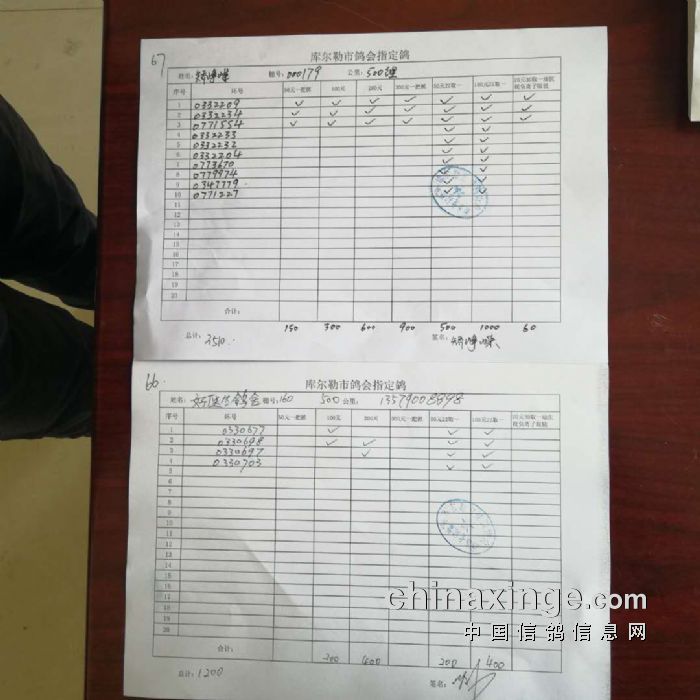 67
库尔勒市鸽会指定鸽
姓名: 棚号: 000179 公里: 500
序号 环号 50元一把抓 100元 200元 300元一把抓 50元22取一 100元22取一
1 0332209
2 0332234
3 0771554
4 0332233
5 0332232
6 0332204
7 0773670
8 0779974
9 0347779
10 0771227
11
12
13
14
15
16
17
18
19
20
合计:
150 300 600 900 500 1000 60
总计: 3510 签名:
66
库尔勒市鸽会指定鸽
姓名: 棚号: 160 500公里: 13579008898
序号 环号 50元一把抓 100元 200元 300元一把抓 50元22取一 100元22取一
1 0330677
2 0330698
3 0330697
4 0330703
5
6
7
8
9
10
11
12
13
14
15
16
17
18
19
20
合计:
200 400 200 400
总计: 1200 签名:
chinaxinge.com
中国信鸽信息网